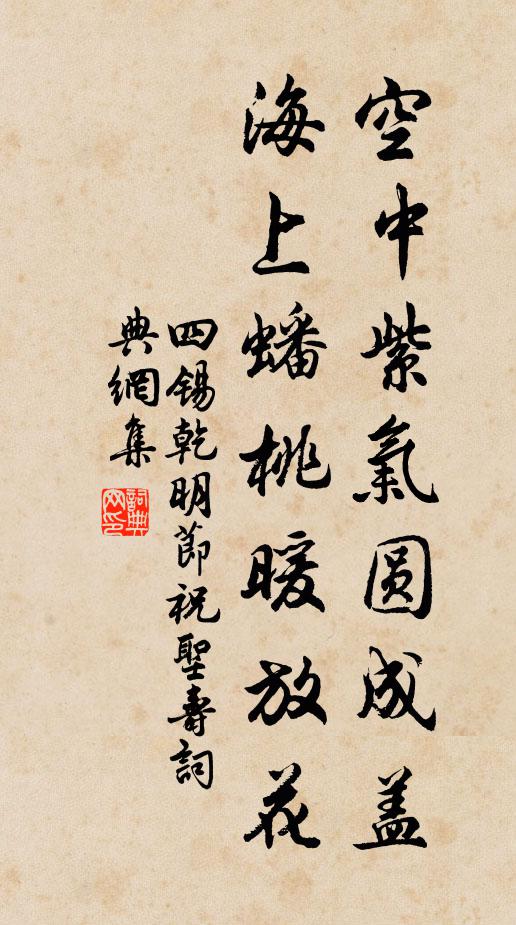 空中紫氣圆成盖
海上蟠桃暖放花
四锡乾明節祝聖壽詞
典網集
詞典网印